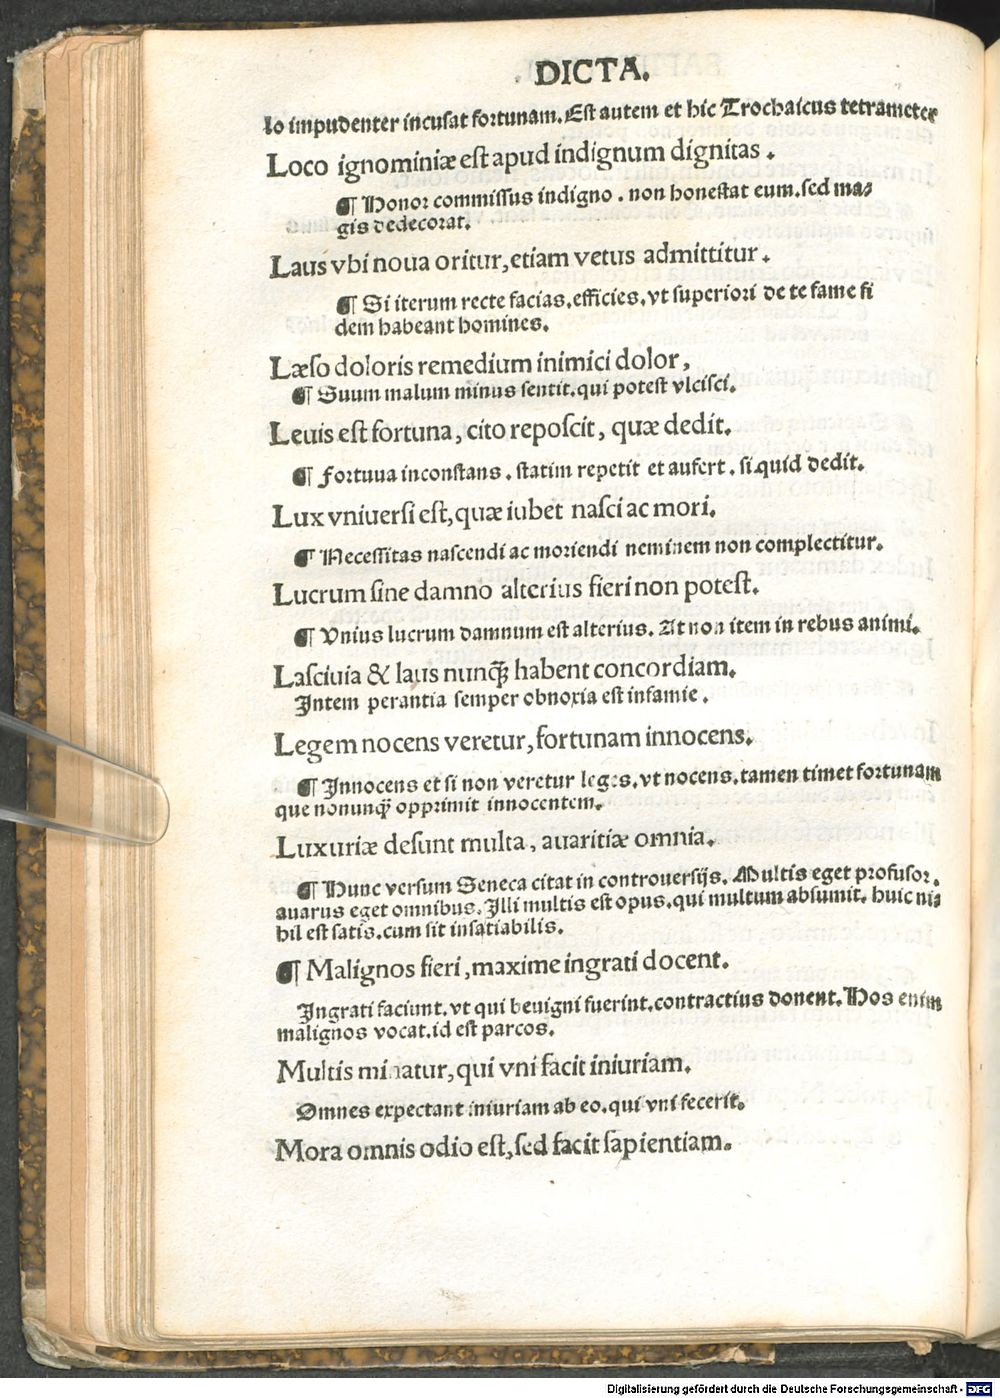 DICTA.
lo impudenter incusat fortunam. Est autem et hic Trochaicus tetrameter
Loco ignominiæ est apud indignum dignitas.
¶ Honor commissus indigno. non honestat eum. sed ma⸗
gis dedecorat.
Laus vbi noua oritur, etiam vetus admittitur.
¶ Si iterum recte facias. efficies. vt superiori de te fame fi
dem habeant homines.
Læso doloris remedium inimici dolor,
¶ Suum malum minus sentit. qui potest vlcisci.
Leuis est fortuna, cito reposcit, quæ dedit.
¶ Fortuua inconstans. statim repetit et aufert. si quid dedit.
Lux vniuersi est, quæ iubet nasci ac mori.
¶ Necessitas nascendi ac moriendi neminem non complectitur.
Lucrum sine damno alterius fieri non potest.
¶ Vnius lucrum damnum est alterius. At non item in rebus animi.
Lasciuia & laus nunq̃ habent concordiam.
Intem perantia semper obnoxia est infamie.
Legem nocens veretur, fortunam innocens.
¶ Innocens et si non veretur leges. vt nocens. tamen timet fortunam
que nonunq̃ opprimit innocentem.
Luxuriæ desunt multa, auaritiæ omnia.
¶ Hunc versum Seneca citat in controuersijs. Multis eget profusor.
auarus eget omnibus. Illi multis est opus. qui multum absumit. huic ni⸗
hil est satis. cum sit insatiabilis.
¶ Malignos fieri, maxime ingrati docent.
Ingrati faciunt. vt qui beuigni fuerint. contractius donent. Hos enim
malignos vocat. id est parcos.
Multis minatur, qui vni facit iniuriam.
Omnes expectant iniuriam ab eo. qui vni fecerit.
Mora omnis odio est, sed facit sapientiam.
Digitalisierung gefördert durch die Deutsche Forschungsgemeinschaft - DFG